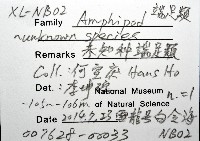 XL-NB02
Family Amphipod 端足類
unknown species
Remarks 未知种端足類
Coll.: 何宣慶 Hans Ho
Det.: 李坤瑄
National Museum n=1
-105m~-106m of Natural Science
Date 2014.9.23
007628-00033 NB02